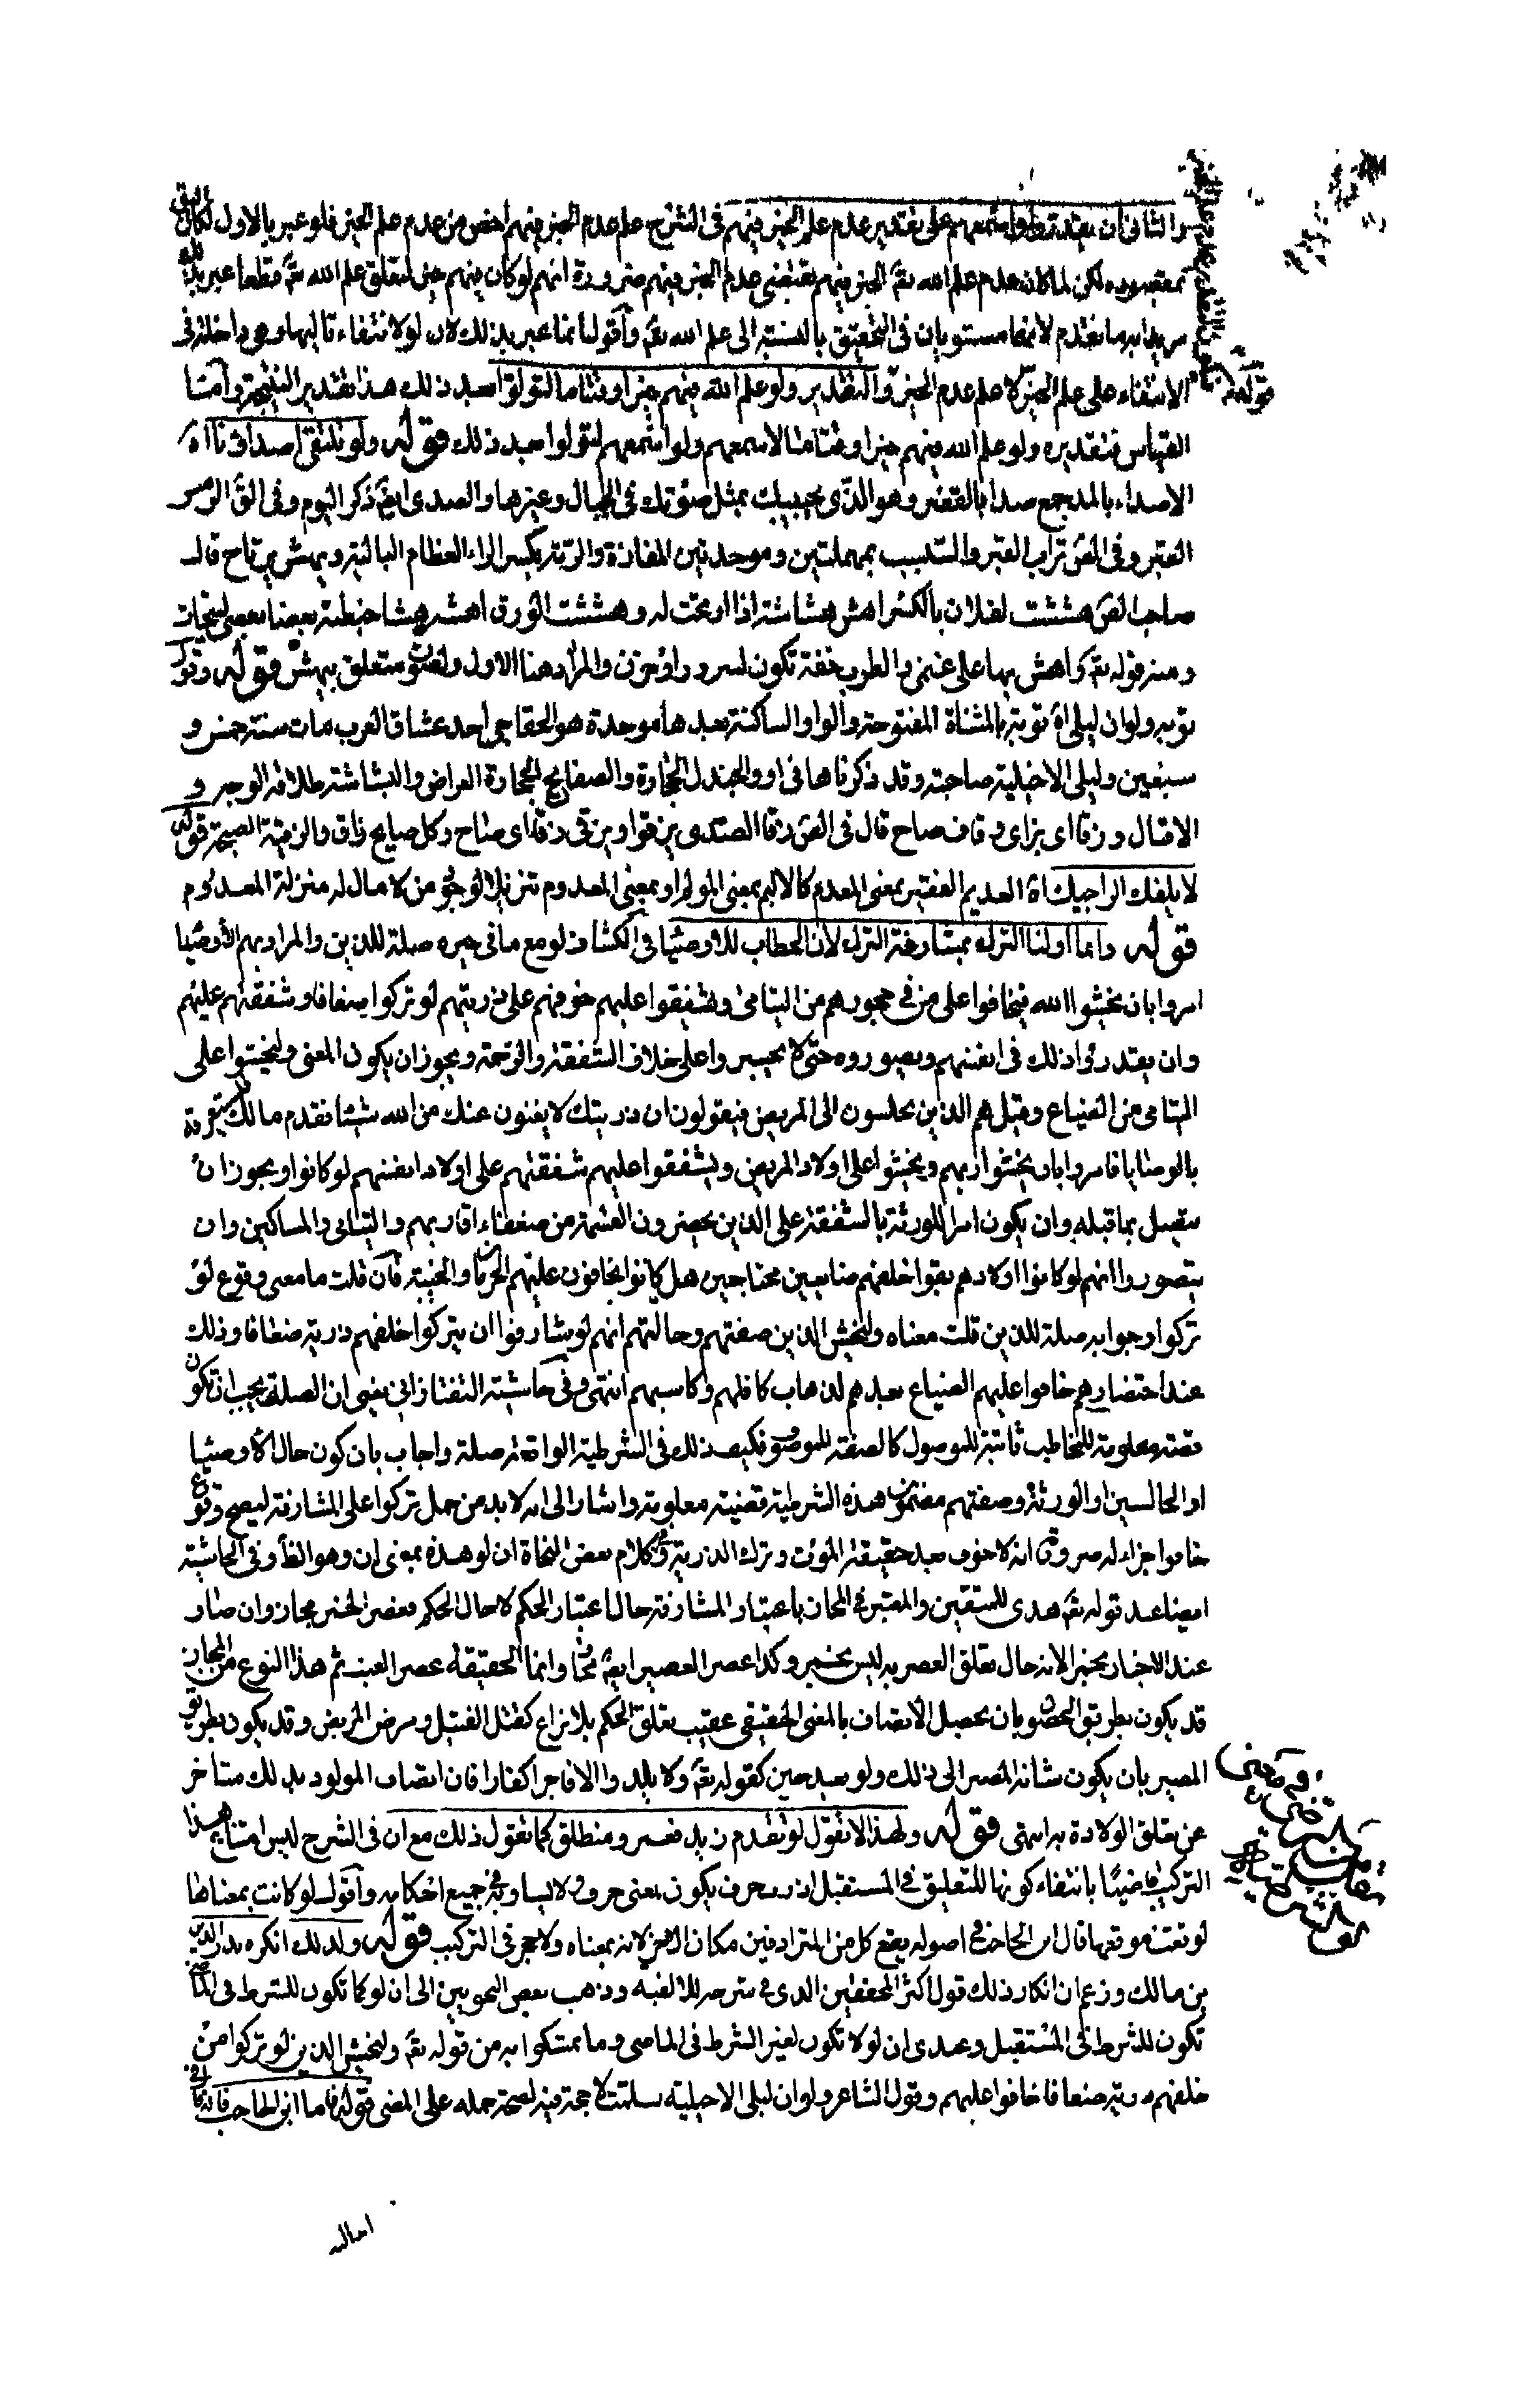 الثانى ان يقدر ولو اسمعهم على تقدير عدم علم الخير فيهم فى الشرح علم عدم الخير فيهم اخص من عدم علم الخير فلو عبر بالاول لكان
بمقصوده لكن لما كان عدم علم الله تعٓ الخير فيهم يقتضى عدم الخير فيهم ضرورة انهم لو كان فيهم خير لتعلق علم الله تعٓ قطعا عبر
به ما تقدم لانهما مستويان فى التحقيق بالنسبة الى علم الله تعٓ واقول انما عبر بذلك لان لو لانتفاء تاليها وهى داخلة فى
الانتفاء على علم الخير لا علم عدم الخير والتقدير ولو علم الله فيهم خيرا وقتا ما لتولوا بعد ذلك هذا تقدير النتيجة واما
القياس فتقديره ولو علم الله فيهم خيرا وقتا ما لاسمعهم ولو اسمعهم لتولوا بعد ذلك قوله ولو تلتقى اصداؤنا اه
الاصداء بالمد جمع صدا بالقصر وهو الذى يجيبك بمثل صوتك فى الجبال وغيرها والصدى ايضٓ ذكر البوم وفى القٓ الرمس
القبر وفى الصٓ تراب القبر والسبسب بمهملتين وموحدتين المفازة والرمة بكسر الراء العظام البالية ويهش يرتاح قال
صاحب الصٓ هششت لفلان بالكسر اهش هشاشة اذا ارتحت له وهششت الورق اهشه هشا خبطته بعصا
ومنه قوله تعٓ واهش بها على غنمى والطرب خفة تكون لسرور او حزن والمراد هنا الاول ولصوت متعلق بيهش قوله وقول
توبه ولو ان ليلى اه توبة بالمثناة المفتوحة والواو الساكنة بعدها موحدة هو الخفاجى احد عشاق العرب مات سنة خمس و
سبعين وليلى الاخيلية صاحبته وقد ذكرناها فى او والجندل الحجارة والصفايح الحجارة العراض والبشاشة طلاقة الوجه و
الاقبال وزقا اى بزاى وقاف صاح قال فى الصٓ زقا الصدى يزقوا ويزقى زقاء اى صاح وكل صايح زاق والزقية الصيحة قوله
لا يلفك الراجيك اه العديم الفقير بمعنى المعدم كالاليم بمعنى المولم او بمعنى المعدوم تنزيلا لوجود من لا مال له منزلة المعدوم
قوله وانما اولنا الترك بمشارفة الترك لان الخطاب للاوصيا فى الكشاف لو مع ما فى حيزه صلة للذين والمراد بهم الاوصيا
امروا بان يخشوا الله فيخافوا على من فى حجورهم من اليتامى ويشفقوا عليهم خوفهم على ذريتهم لو تركوا ضعافا وشفقتهم عليهم
وان يقدروا ذلك فى انفسهم ويصوروه حتى لا يجسروا على خلاف الشفقة والرحمة ويجوز ان يكون المعنى وليخشوا على
اليتامى من الضياع وقيل هم الذين يجلسون الى المريض فيقولون ان ذريتك لا يغنون عنك من الله شيئا فقدم مالك
بالوصايا فامروا بان يخشوا ربهم ويخشوا على اولاد المريض ويشفقوا عليهم شفقتهم على اولاد انفسهم لو كانوا ويجوز ان
يتصل بما قبله وان يكون امرا للورثة بالشفقة على الذين يحضرون القسمة من ضعفاء اقاربهم واليتامى والمساكين وان
يتصوروا انهم لو كانوا اولادهم بقوا خلفهم ضايعين محتاجين هل كانوا يخافون عليهم الحرمان والخيبة فان قلت ما معنى وقوع لو
تركوا وجوابه صلة للذين قلت معناه وليخش الذين صفتهم وحالتهم انهم لو شارفوا ان يتركوا خلفهم ذرية ضعافا وذلك
عند احتضارهم خافوا عليهم الضياع بعدهم لذهاب كافلهم وكاسبهم انتهى وفى حاشية التفتازانى يعنى ان الصلة يجب ان تكون
قصة معلومة للمخاطب ثابتة للموصول كالصفة للموصوف فكيف ذلك فى الشرطية الواقعة صلة واجاب بان كون حال الاوصيا
او الجالسين او الورثة وصفتهم مضمون هذه الشرطية قضية معلومة واشار الى انه لا بد من حمل تركوا على المشارفة ليصح وقوع
خافوا جزاء له ضرورة انه لا خوف بعد حقيقة الموت وترك الذرية وفى كلام بعض النحاة ان لو هذه بمعنى ان وهو الظٓ وفى الحاشية
ايضا عند قوله تعٓ هدى للمتقين والمعتبر فى المجاز باعتبار المشارفة حال اعتبار الحكم لا حال الحكم فعصر الخمر مجاز وان صار
عند الاخبار بخمر الا انه حال تعلق العصر به ليس بخمر وكذا عصر العصير ايضٓ مجاز وانما الحقيقة عصر العنب ثم هذا النوع من المجاز
قد يكون بطريق الحصول بان يحصل الاتصاف بالمعنى الحقيقى عقيب تعلق الحكم بلا نزاع كقتل القتيل ومرض المريض وقد يكون بطريق
المصير بان يكون شانه المصير الى ذلك ولو بعد حين كقوله تعٓ ولا يلدوا الا فاجرا كفارا فان اتصاف المولود بذلك متاخر
عن تعلق الولادة به انتهى قوله ولهذا لا تقول لو يقدم زيد فعمرو منطلق كما تقول ذلك مع ان فى الشرح ليس امتناع هذا
التركيب قاضيًا بانتفاء كونها للتعليق فى المستقبل اذ رب حرف يكون بمعنى حرف ولا يساويه فى جميع احكامه واقول لو كانت بمعناها
لوقعت موقعها قال ابن الحاجب فى اصوله يقع كل من المترادفين مكان الاخر لانه بمعناه ولا حجر فى التركيب قوله ولذلك انكره بدر الدين
بن مالك وزعم ان انكار ذلك قول اكثر المحققين الذى فى شرحه للالفية وذهب بعض النحويين الى ان لو كما تكون للشرط فى الماضى
تكون للشرط فى المستقبل وعندى ان لو لا تكون لغير الشرط فى الماضى وما تمسكوا به من قوله تعٓ وليخش الذين لو تركوا من
خلفهم ذرية ضعافا خافوا عليهم وقول الشاعر ولو ان ليلى الاخيلية سلمت لا حجة فيه لصحة حمله على المضى قوله فاما ابن الحاجب فانه قال فى
اماليه